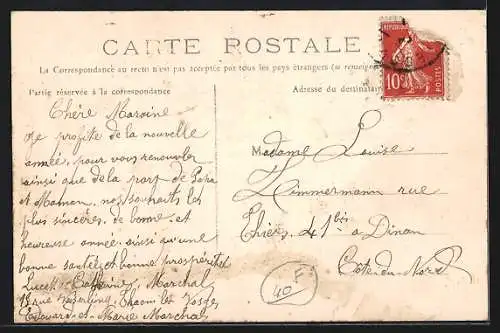 CARTE POSTALE
La Correspondance au recto n'est pas acceptée par tous les pays étrangers (se renseigner
Partie réservée à la correspondance
Adresse du destinataire
10
POSTES
Chére Maraine
Je profite de la nouvelle
année, pour vous renouveler
ainsi que de la part de Papa
et Maman, nos souhaits les
plus sincères, de bonne et
heureuse année, ainsi qu'une
bonne santé, et bonne prospérité
Lucette Marchal
18 rue Thaon les Vosges
Edouard et Marie Marchal
Madame Louise
Zimmermann rue
Thiers 41bis a Dinan
Côte-du-Nord
F
40